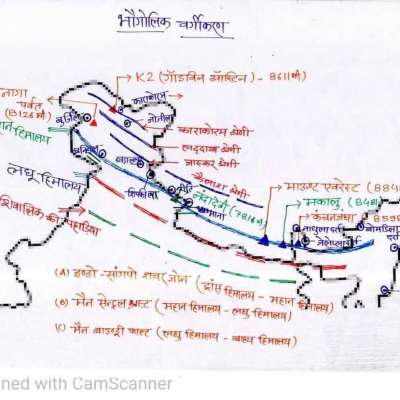 भौगोलिक वर्गीकरण
K2 (गॉडविन ऑस्टिन) - 8611मी०
नागा
पर्वत
(8126मी)
काराकोरम
बुर्जिल
जोजीला
काराकोरम श्रेणी
लद्दाख श्रेणी
जास्कर श्रेणी
कैलाश श्रेणी
हिमालय
लघु हिमालय
शिपकीला
नंदादेवी (7816मी)
माउण्ट एवरेस्ट (884
मकालु (848
कंचनजंघा (8598
शिवालिक की पहाड़िया
नाथुला दर्रा
जेलेप्ला दर्रा
बोमडिला
(A) इण्डो-सांगपो शचर जोन (ट्रांस हिमालय - महान हिमालय)
(B) मैन सेन्ट्रल थ्रस्ट (महान हिमालय - लघु हिमालय)
(C) मैन बाउण्ड्री फाल्ट (लघु हिमालय - बाह्य हिमालय)
ned with CamScanner